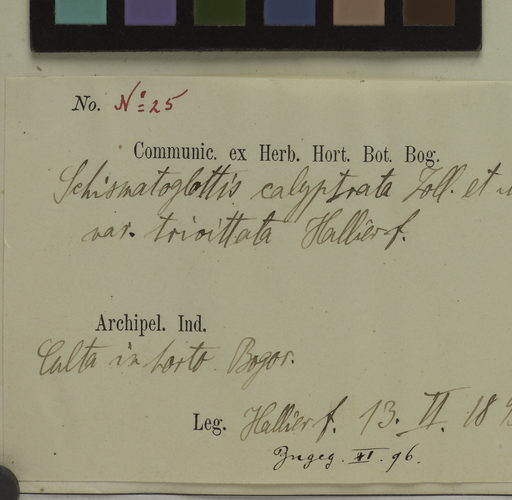 No. No=25
Communic. ex Herb. Hort. Bot. Bog.
Schismatoglottis calyptrata Zoll. et
var. trivittata Hallier f.
Archipel. Ind.
Culta in horto Bogor.
Leg. Hallier f. 13. II. 189
Ingeg. XI. 96.